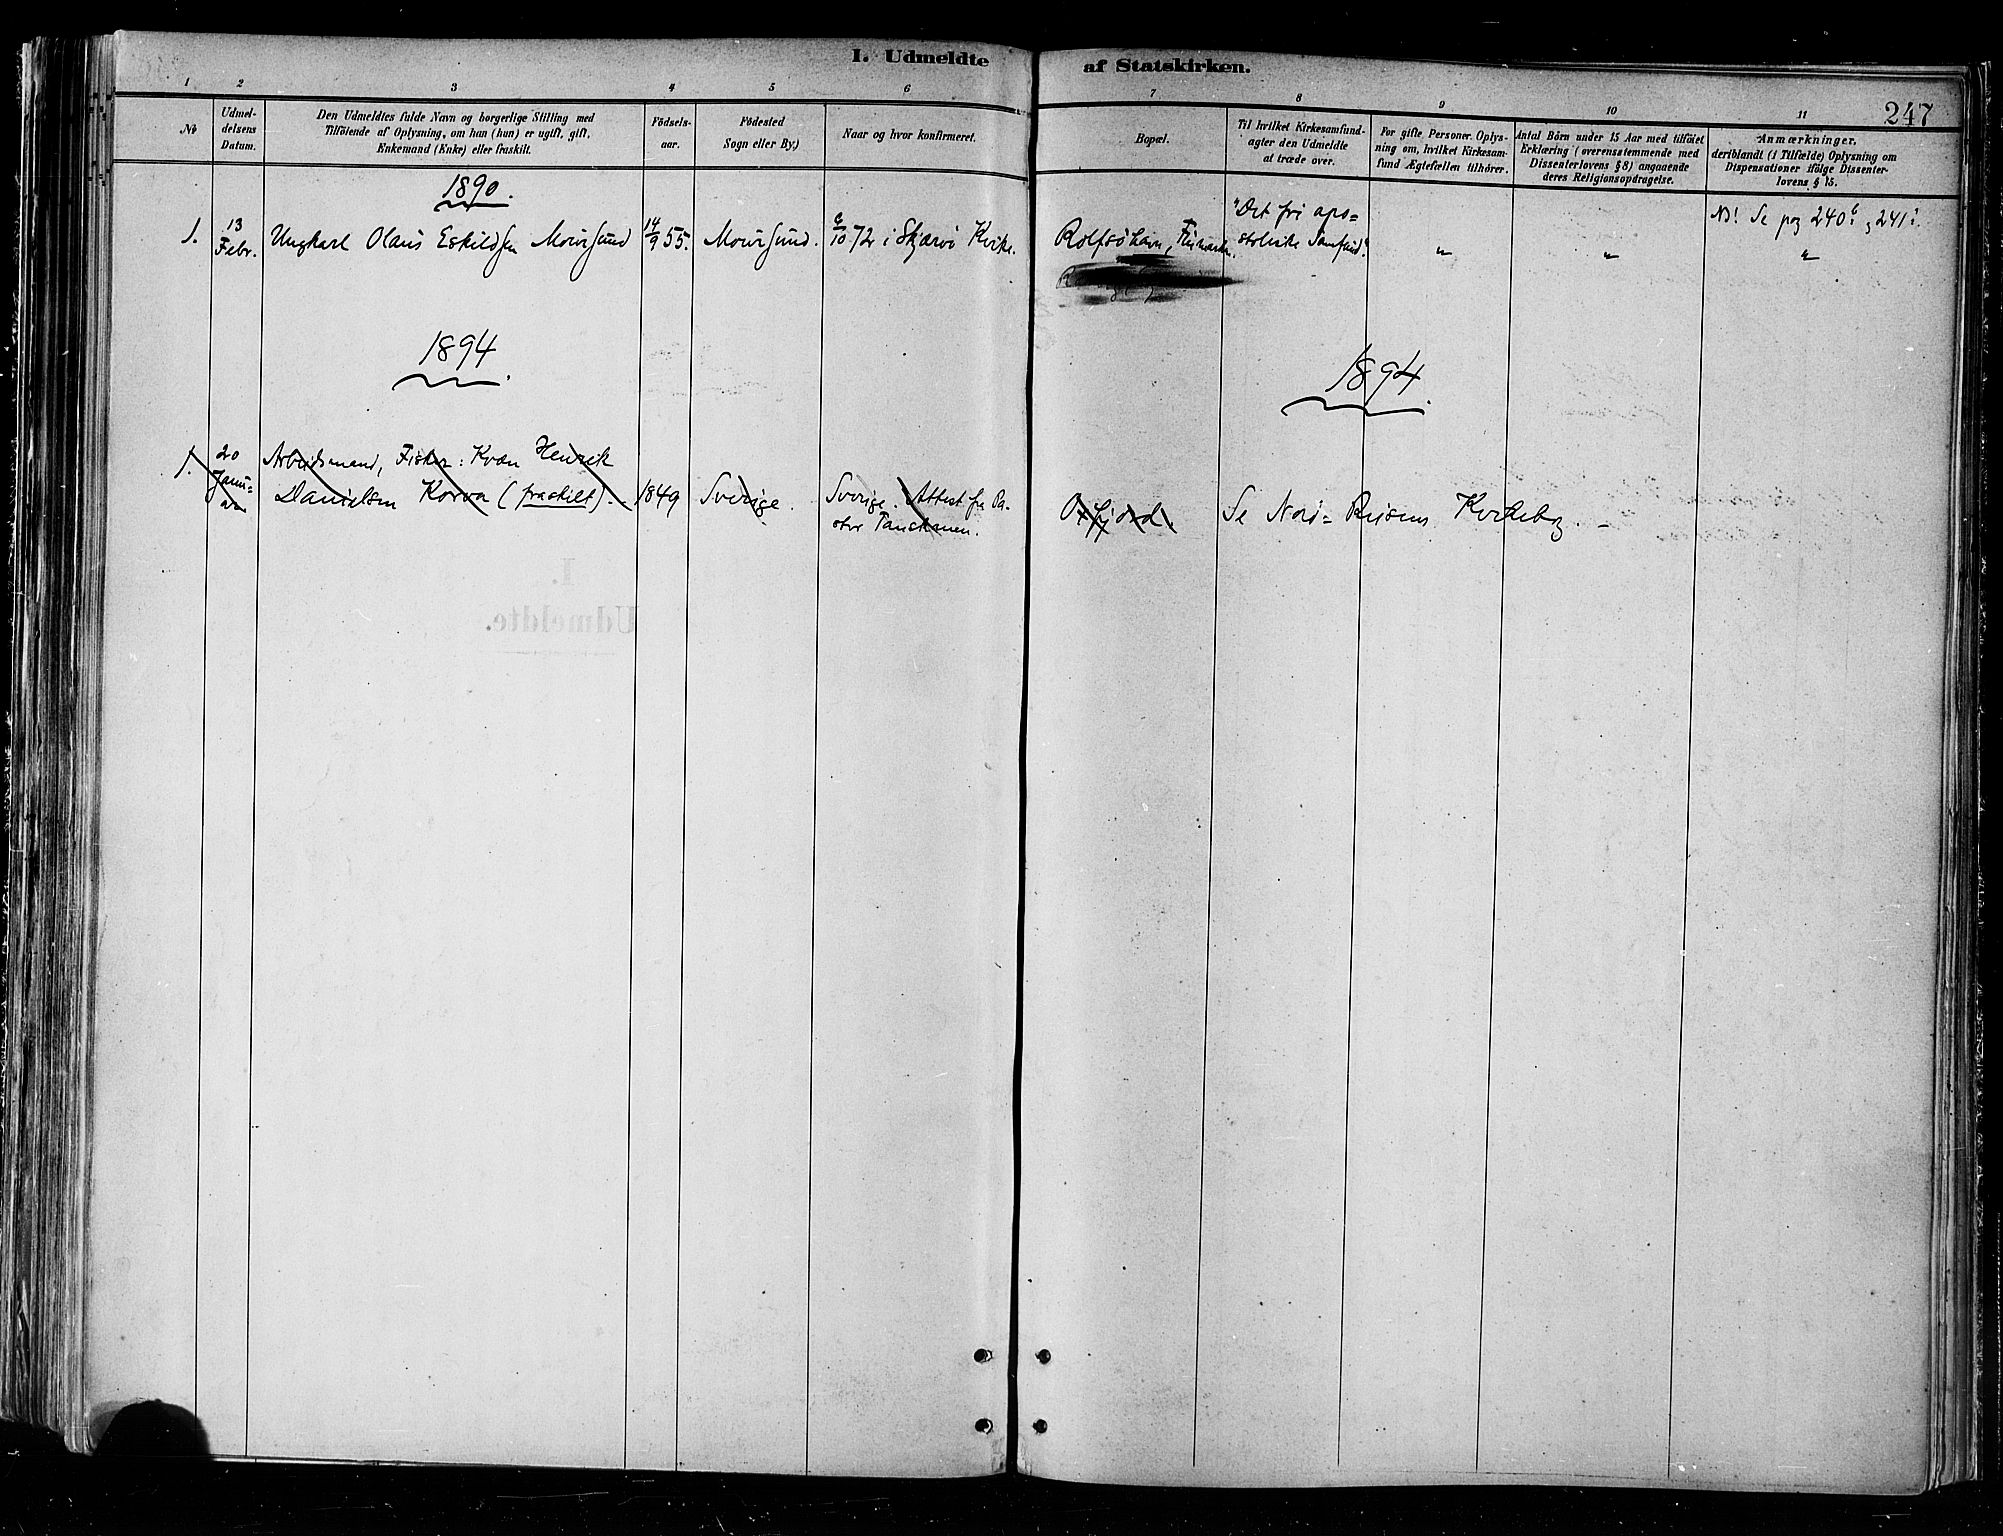 I. Udmeldte af Statskirken.
247
1 2 3 4 5 6 7 8 9 10 11
No
Udmel-
delsens
Datum.
Den Udmeldtes fulde Navn og borgerlige Stilling med
Tilföiende af Oplysning, om han (hun) er ugift, gift,
Enkemand (Enke) eller fraskilt.
Födsels-
aar.
Födested
Sogn eller By,)
Naar og hvor konfirmeret.
Bopæl.
Til hvilket Kirkesamfund-
agter den Udmeldte
at træde over.
For gifte Personer. Oplys-
ning om, hvilket Kirkesam-
fund Ægtefællen tilhörer.
Antal Börn under 15 Aar med tilföiet
Erklæring (overensstemmende med
Dissenterlovens § 8) angaaende
deres Religionsopdragelse.
Anmærkninger,
deriblandt (i Tilfælde) Oplysning om
Dispensationer ifölge Dissenter-
lovens § 15.
1890.
1.
13
Febr.
Ungkarl Olaus Eskildsen Moursund
14/9 55.
Moursund.
6/10 72 i Skjærvö Kirke.
Rolfsöhavn, Finmarken.
"Det fri apo=
stoliske Samfund".
"
"
NB! Se pag 240 b, 241 a.
"
1894.
1894.
1.
20
Janu=
ar
Arbeidsmand, Fisker: Kvæn Henrik
Danielsen Korva (fraskilt).
1849
Sverige.
Sverige. Attest fra Pa-
stor
Oxfjord.
Se Nord=Reisens Kirkebog.
I.
Udmeldte.